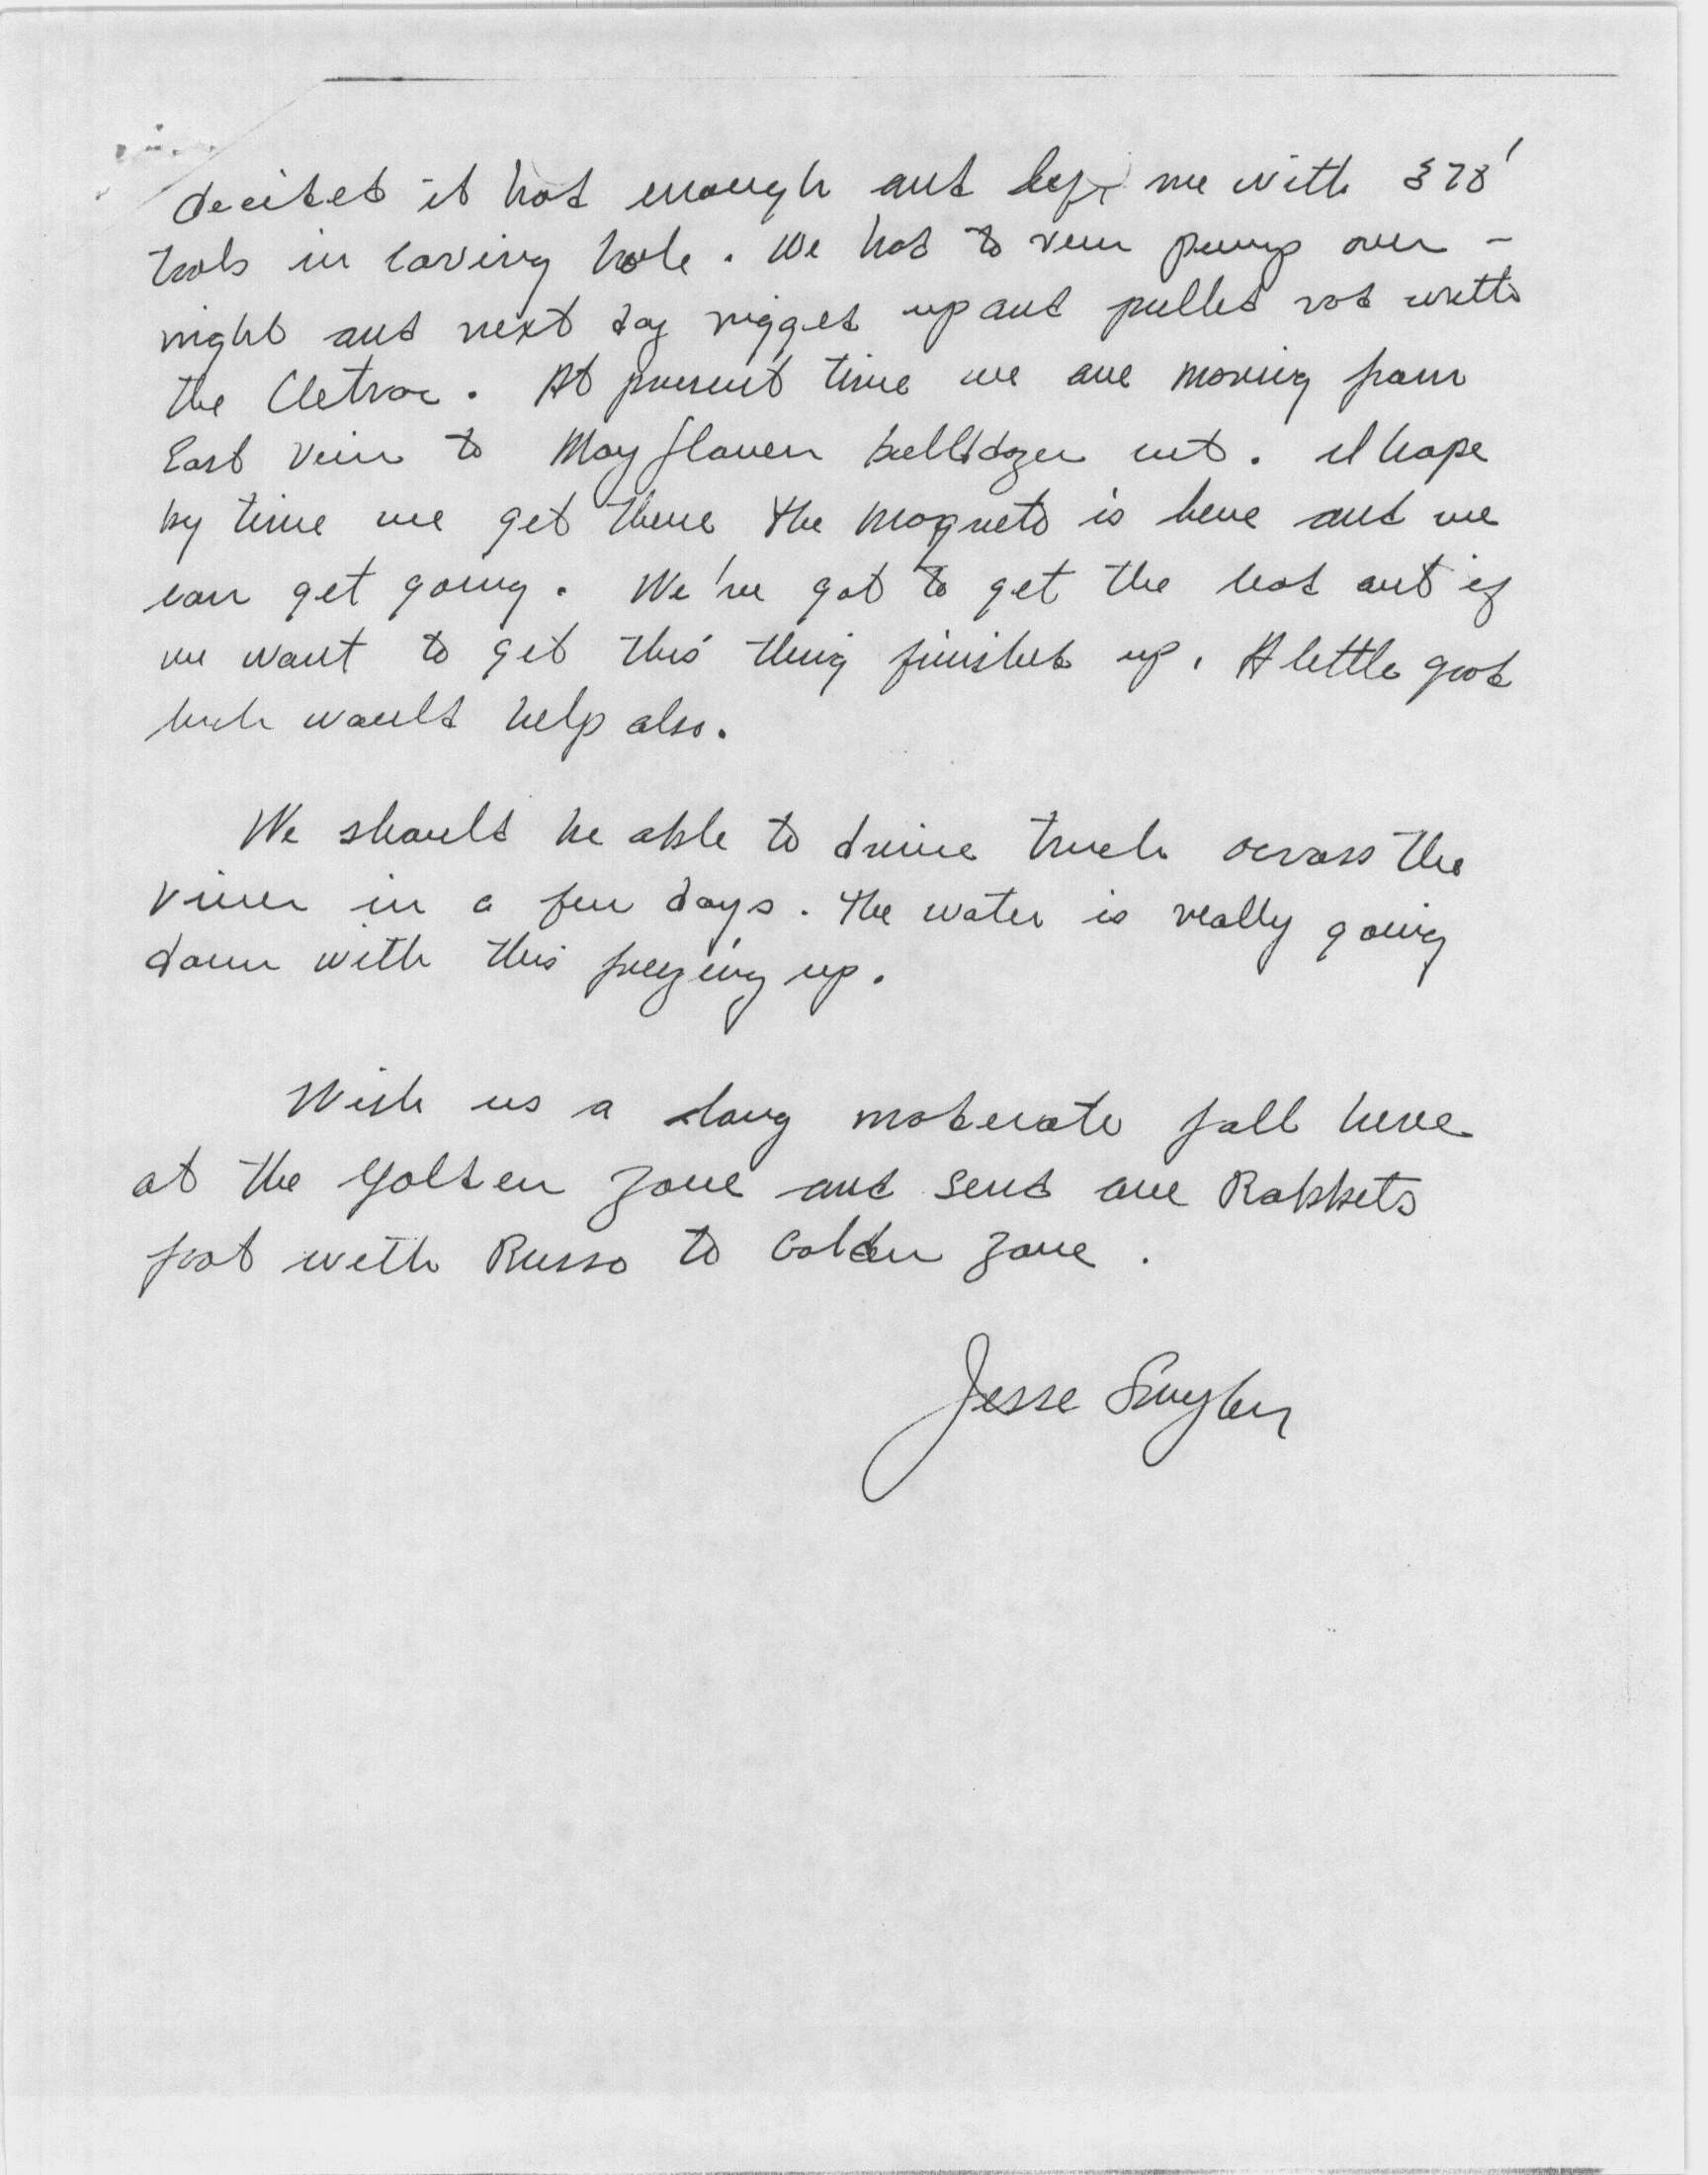 decided it had enough and left me with 378'
tools in caving hole. We had to run pump over-
night and next day rigged up and pulled rod with
the Cletrac. At present time we are moving from
East Vein to Mayflower bulldozer cut. I hope
by time we get there the magneto is here and we
can get going. We've got to get the lead out if
we want to get this thing finished up. A little good
luck would help also.
We should be able to drive truck across the
river in a few days. The water is really going
down with this freezing up.
Wish us a long moderate fall here
at the Golden Zone and send one Rabbits
foot with Russo to Golden Zone.
Jesse